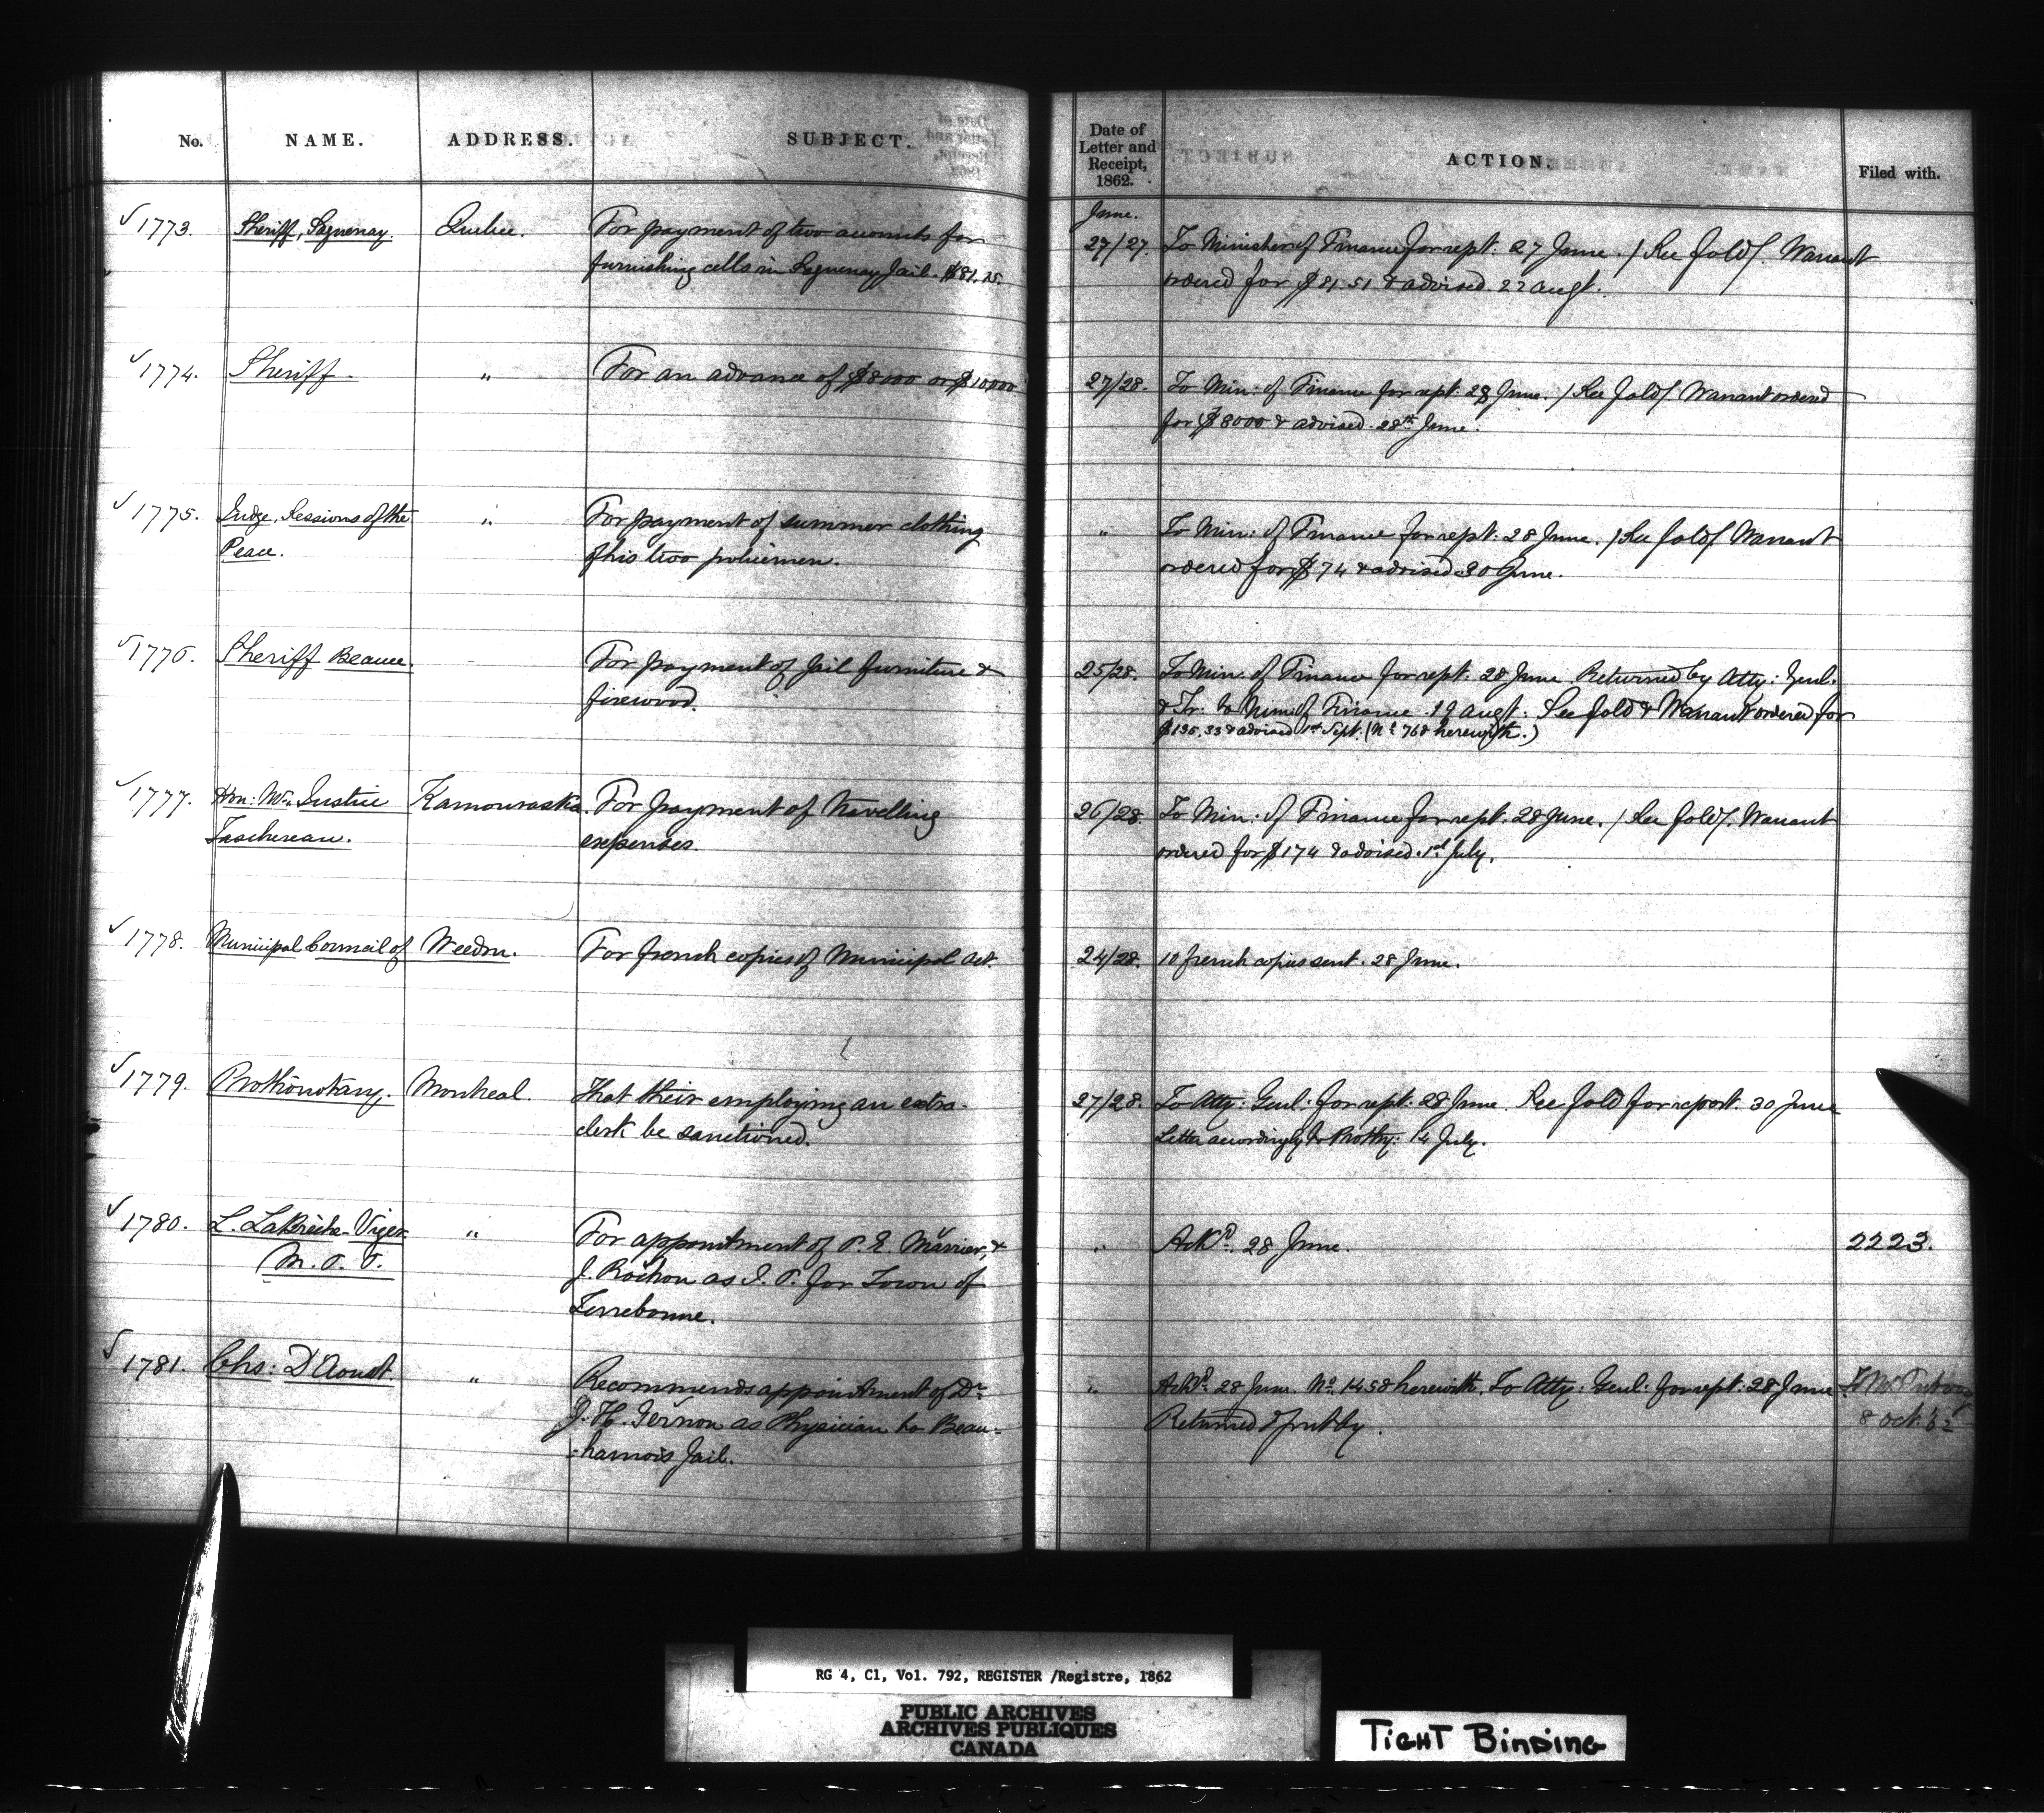 No. NAME. ADDRESS. SUBJECT.
Date of Letter and Receipt, 1862. ACTION. Filed with.
√ 1773. Sheriff, Saguenay. Quebec. For payment of two accounts for
furnishing cells in Saguenay Jail. $81.15.
June.
27/27. To Minister of Finance for rept. 27 June. / See fold /. Warrant
ordered for $81.51 & advised. 22 augt.
√ 1774. Sheriff. " For an advance of $8000 or $10000
27/28. To Min: of Finance for rept: 28 June. / See fold / Warrant ordered
for $8000 & advised. 28th June.
√ 1775. Judge, Sessions of the " For payment of summer clothing
Peace. of his two policemen.
" To Min: of Finance for rept: 28 June. / See fold / Warrant
ordered for $74 & advised 30 June.
√ 1776. Sheriff Beauce. For payment of Jail furniture &
firewood.
25/28. To Min: of Finance for rept: 28 June. Returned by Atty: Genl.
& Tr: to Minr of Finance. 19 augt. See fold & Warrant ordered for
$135.33 & advised 1st Sept. (No 768 herewith.)
√ 1777. Hon: Mr. Justice Kamouraska. For payment of travelling
Taschereau. expenses.
26/28. To Min: of Finance for rept. 28 June. / See fold /. Warrant
ordered for $174 & advised. 1st July.
√ 1778. Municipal Council of Weedon. For french copies of Municipal Act.
24/28. 10 french copies sent. 28 June.
√ 1779. Prothonotary. Montreal. That their employing an extra-
clerk be sanctioned.
27/28. To Atty: Genl: for rept: 28 June. See fold for report. 30 June
Letter accordingly to Prothy: 14 July.
√ 1780. L. LaBrèche-Viger " For appointment of P. E. Marrier, &
M. P. P. J. Rochon as J. P. for Town of
Terrebonne.
" Ackd. 28 June. 2223.
√ 1781. Chs: D'Aoust. " Recommends appointment of Dr
J. H. Gernon as Physician to Beau-
:harnois Jail.
" Ackd. 28 June. No. 1458 herewith. To Atty: Genl: for rept: 28 June
Returned & put by.
8 Oct. 62
RG 4, C1, Vol. 792, REGISTER /Registre, 1862
PUBLIC ARCHIVES
ARCHIVES PUBLIQUES
CANADA
TIGHT BINDING